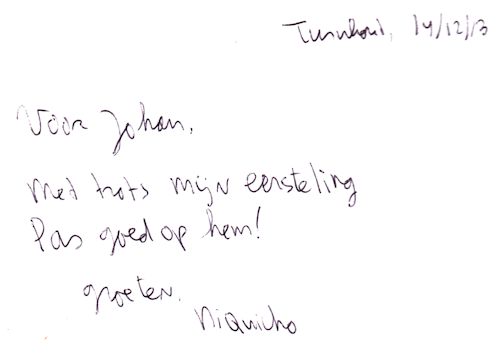 Turnhout, 14/12/13
Voor Johan,
Met trots mijn eersteling
Pas goed op hem!
groeten.